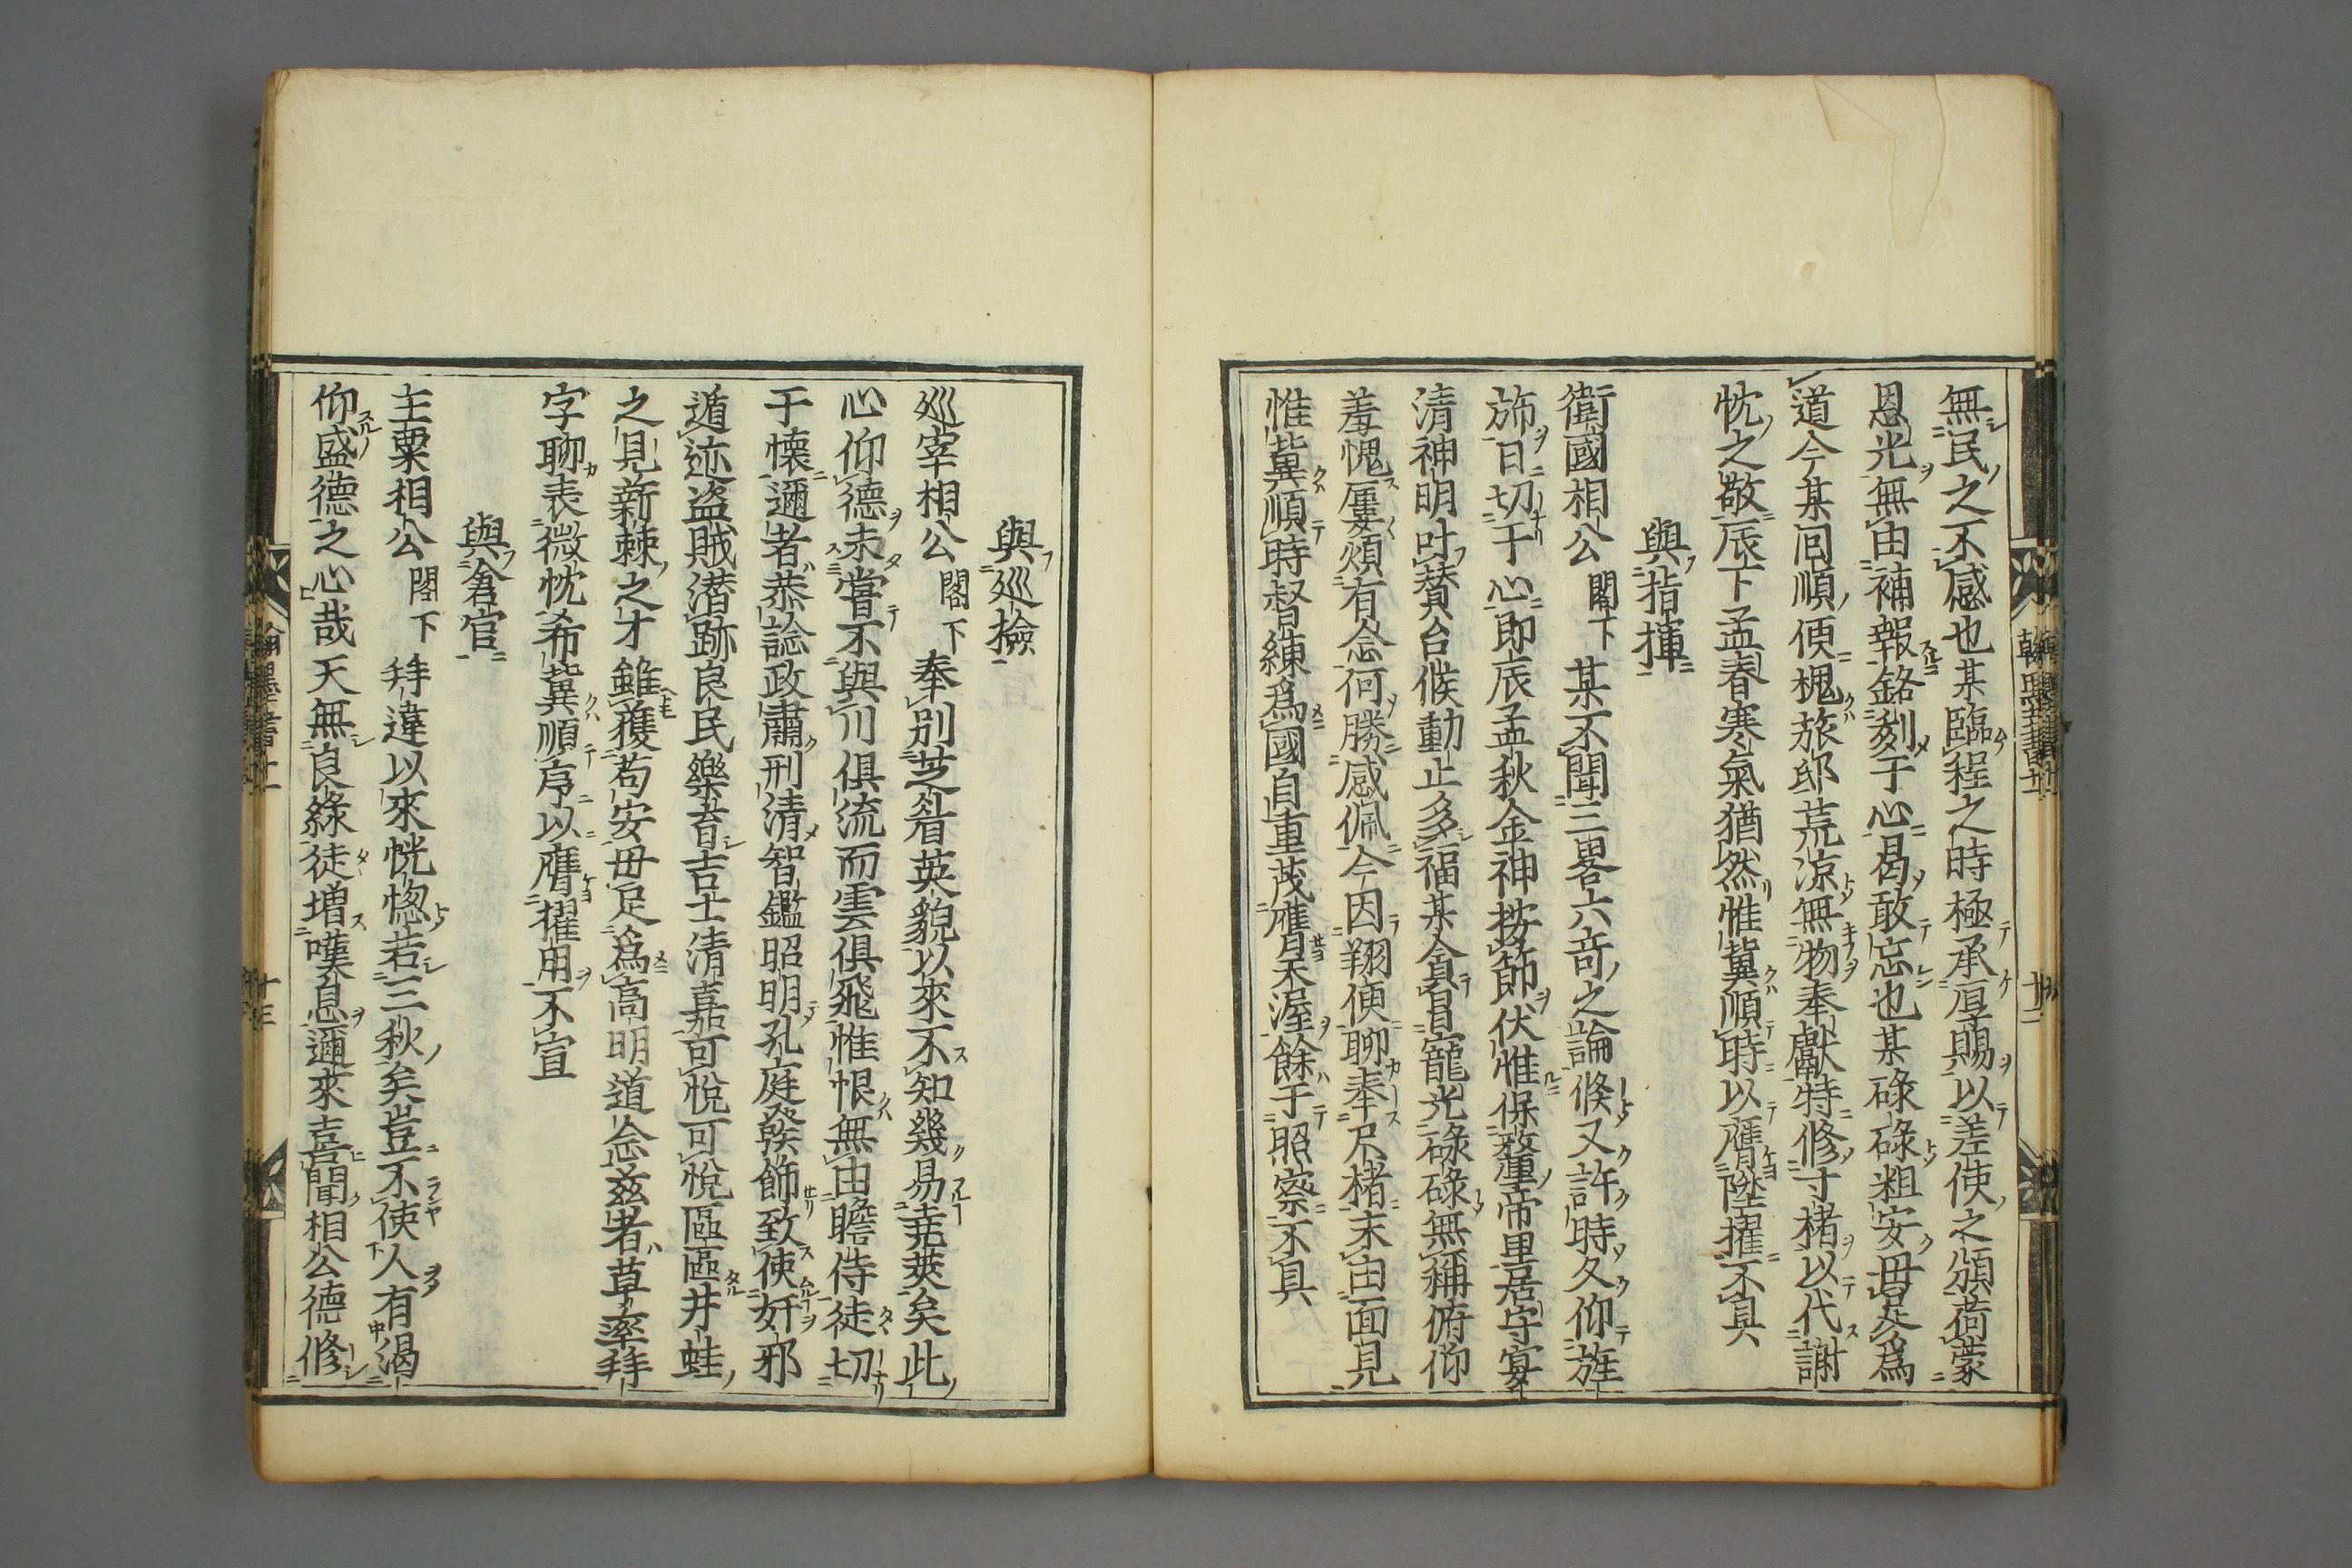 無民之不感也某臨程之時極承厚賜以差使之頒荷蒙
恩光無由補報銘刻于心曷敢忘也某碌碌粗安毋足爲
道今某囘順便槐旅邸荒涼無物奉獻特修寸楮以代謝
忱之敬辰下孟春寒氣猶然惟冀順時以膺陞擢不具
與指揮
衛國相公閣下某不聞三畧六奇之論倐又許時久仰旌
旆日切于心即辰孟秋金神按節伏惟保釐帝里居守宴
清神明叶贊台候動止多福某貪冒寵光碌碌無補俯仰
羞愧屢煩有念何勝感佩今因翔便聊奉尺楮末由面見
惟冀順時督練爲國自重茂膺渥餘于照察不具
與巡撿
巡宰相公閣下奉別芝眷英貌以來不知幾易蓂莢矣此
心仰德未嘗不與川俱流而雲俱飛惟恨無由瞻侍徒切
于懐邇者恭諗政肅刑清智鑑昭明孔庭發飾致使奸邪
遁迹盗賊潜跡良民樂音吉士清嘉可悅可悅區區井蛙
之見新棘之才雖獲苟安毋足爲高明道念茲者草率拜
字聊表微忱希冀順序以膺擢用不宣
與倉官
主粟相公閣下拜違以來恍惚若三秋矣豈不使人有渴
仰盛德之心哉天無良緣徒増嘆息邇來喜聞相公德修